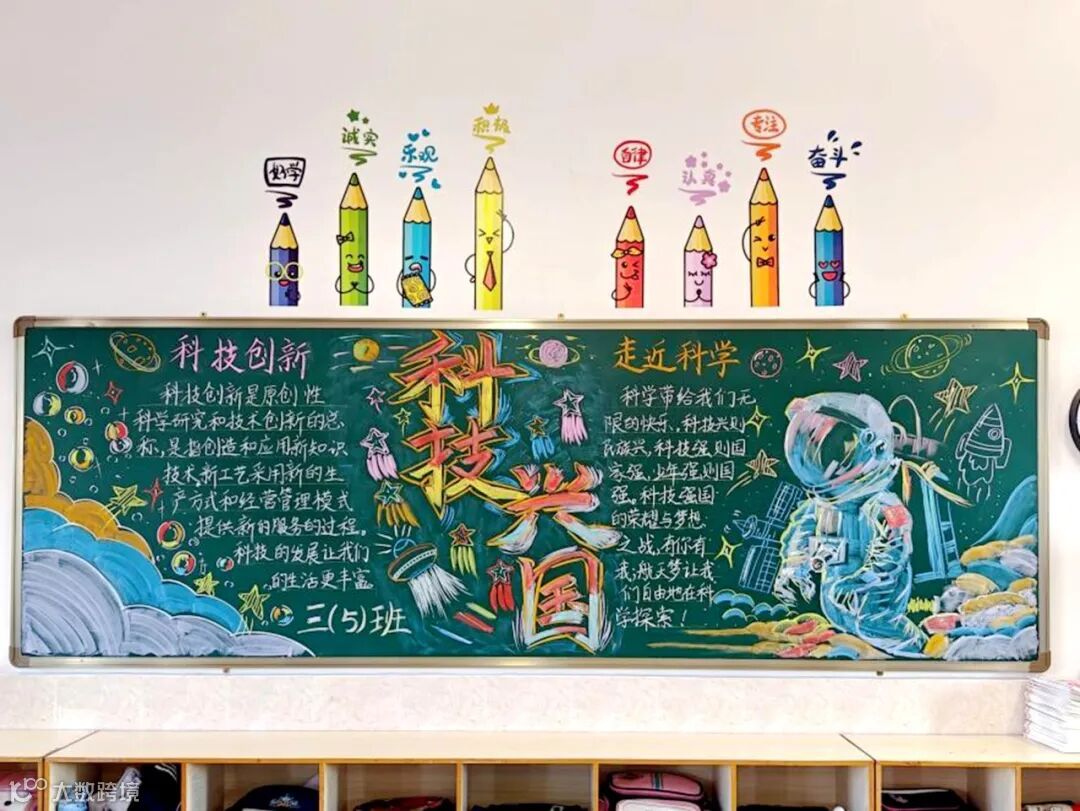 好学
诚实
乐观
积极
自律
认真
专注
奋斗
科技创新
科技创新是原创性
科学研究和技术创新的总
称,是指创造和应用新知识
技术、新工艺采用新的生
产方式和经营管理模式
提供新的服务的过程。
科技的发展让我们
的生活更丰富
三(5)班
科技兴国
走近科学
科学带给我们无
限的快乐、科技兴则
民族兴,科技强则国
家强,少年强则国
强。科技强国
的荣耀与梦想
之战,有你有
我,航天梦让我
们自由地在科
学探索!
大数跨境